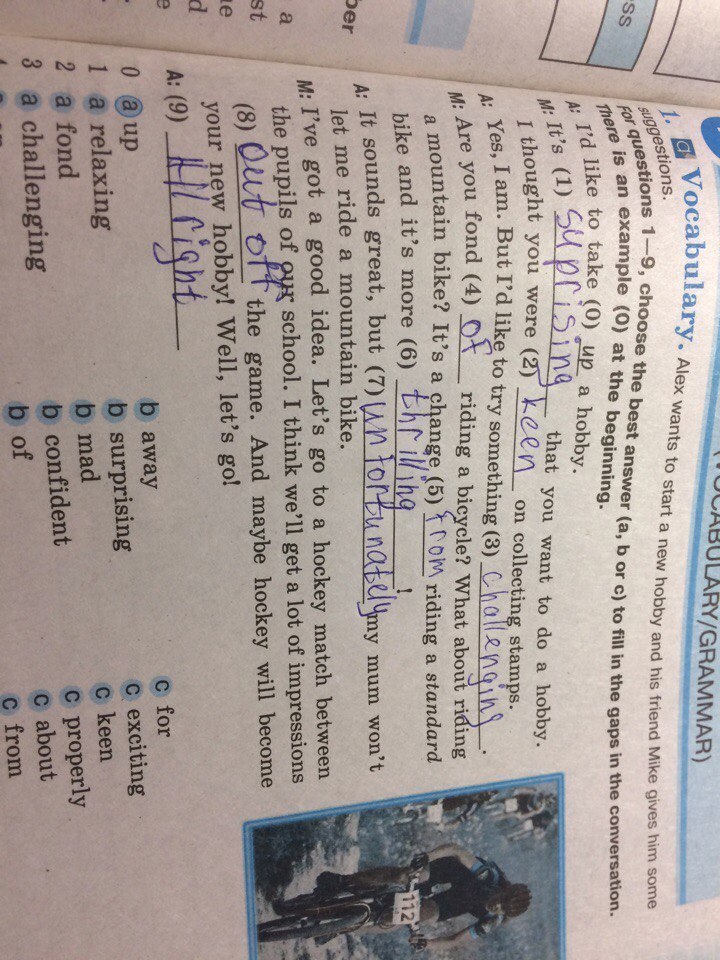 VOCABULARY/GRAMMAR)
1. a Vocabulary. Alex wants to start a new hobby and his friend Mike gives him some
suggestions.
For questions 1—9, choose the best answer (a, b or c) to fill in the gaps in the conversation.
There is an example (0) at the beginning.
A: I'd like to take (0) up a hobby.
M: It's (1) suprising that you want to do a hobby.
I thought you were (2) keen on collecting stamps.
A: Yes, I am. But I'd like to try something (3) challenging.
M: Are you fond (4) of riding a bicycle? What about riding
a mountain bike? It's a change (5) from riding a standard
bike and it's more (6) thrilling!
A: It sounds great, but (7) unfortunately my mum won't
let me ride a mountain bike.
M: I've got a good idea. Let's go to a hockey match between
the pupils of our school. I think we'll get a lot of impressions
(8) out off the game. And maybe hockey will become
your new hobby! Well, let's go!
A: (9) All right
0 a up b away c for
1 a relaxing b surprising c exciting
2 a fond b mad c keen
3 a challenging b confident c properly
b of c about
c from
ss
ber
a
st
ne
d
e
112